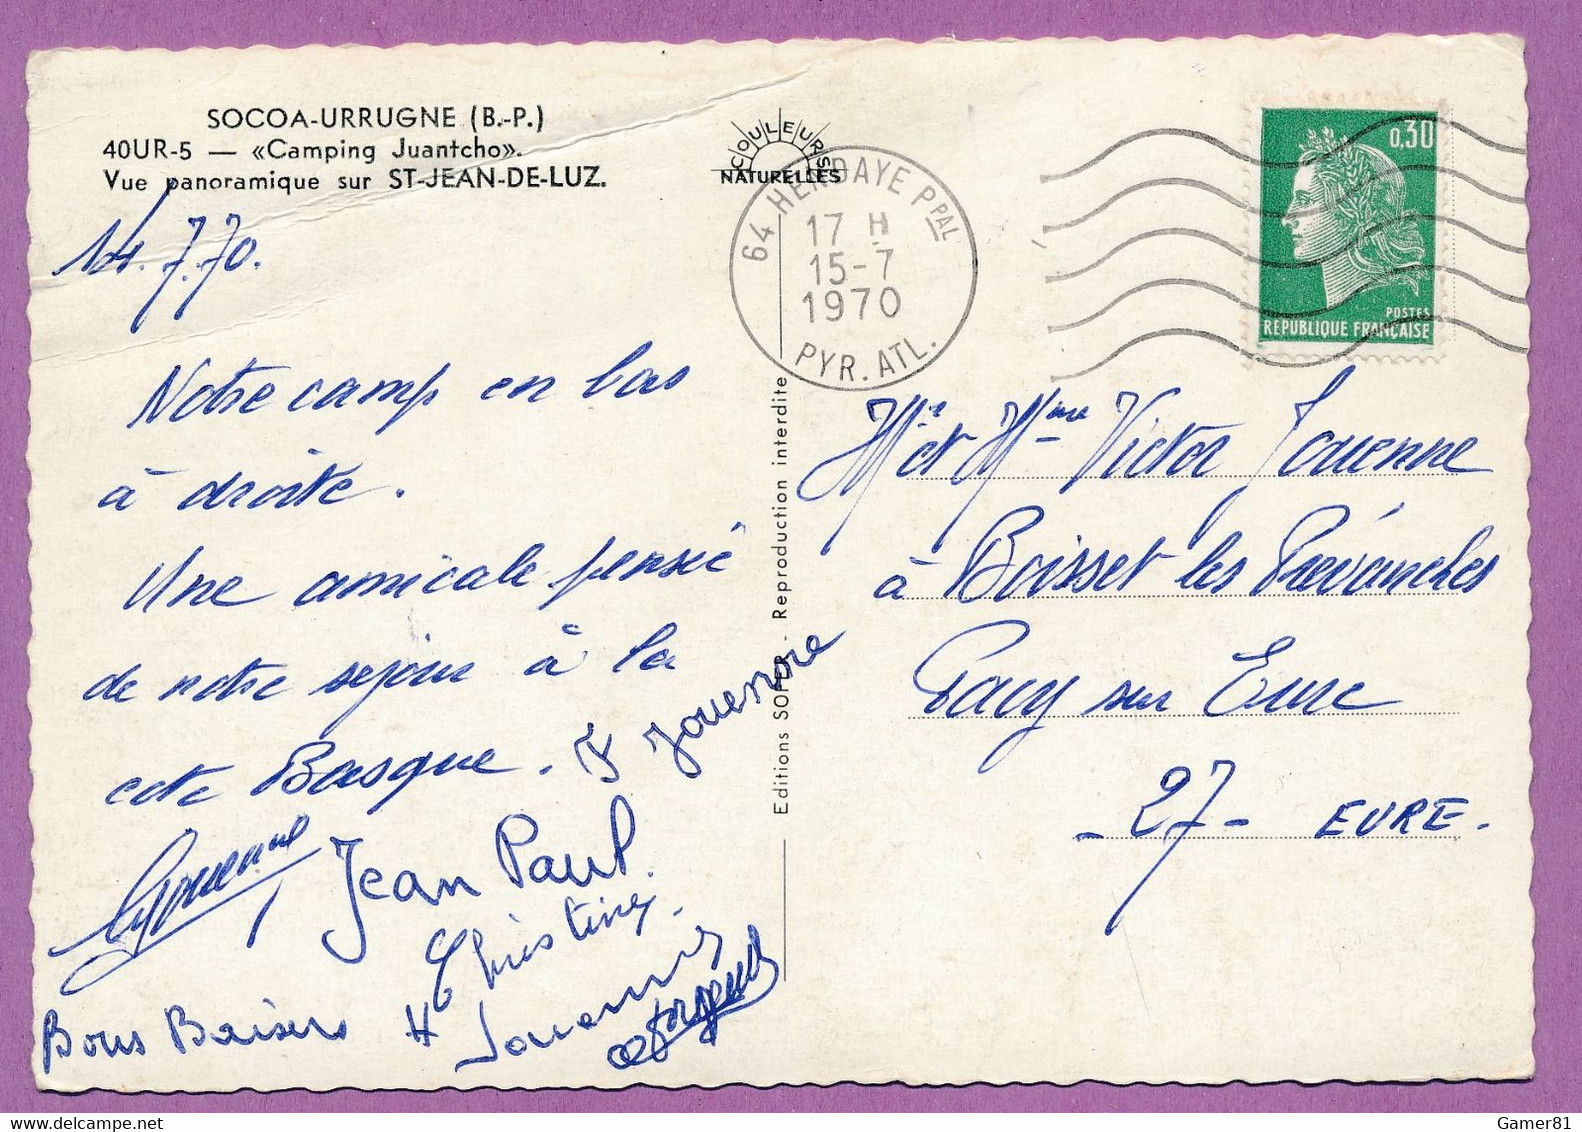 SOCOA-URRUGNE (B.-P.)
40UR-5 — «Camping Juantcho».
Vue panoramique sur ST-JEAN-DE-LUZ.
COULEURS
NATURELLES
64 HENDAYE PPAL
17 H
15-7
1970
PYR. ATL.
0,30
POSTES
REPUBLIQUE FRANÇAISE
14.7.70.
Notre camp en bas
à droite.
Une amicale pensée
de notre sejour à la
cote Basque.
J Jouenne
Jouenne
Jean Paul.
Christine.
Bons Baisers
Jouenne
Editions SOFER - Reproduction interdite
Mr et Mme Victor Jouenne
à Boisset les Prévanches
Pacy sur Eure
- 27 - EURE.
Gamer81